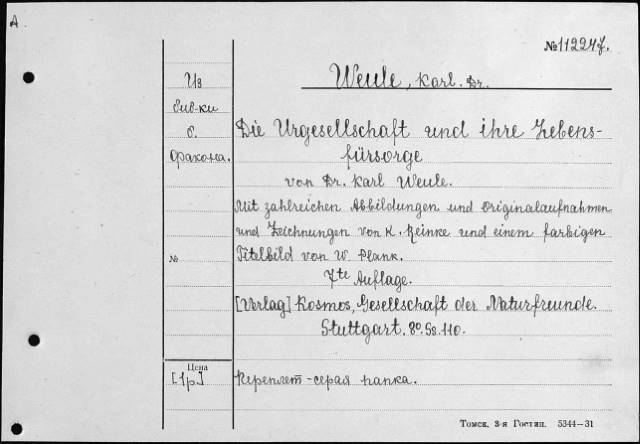 A
№ 112247.
Из
Weule, Karl. Dr.
бив-ки
б.
Die Urgesellschaft und ihre Lebens-
Фрахома.
fürsorge
von Dr. Karl Weule.
Mit zahlreichen Abbildungen und Originalaufnahmen
und Zeichnungen von K. Reinke und einem farbigen
№
Titelbild von W. Plank.
7te Auflage.
[Verlag] Kosmos, Gesellschaft der Naturfreunde.
Stuttgart. 8º. Ss. 110.
Цена
[1р]
Переплет-серая папка.
Томск. 3-я Гостип. 5344—31